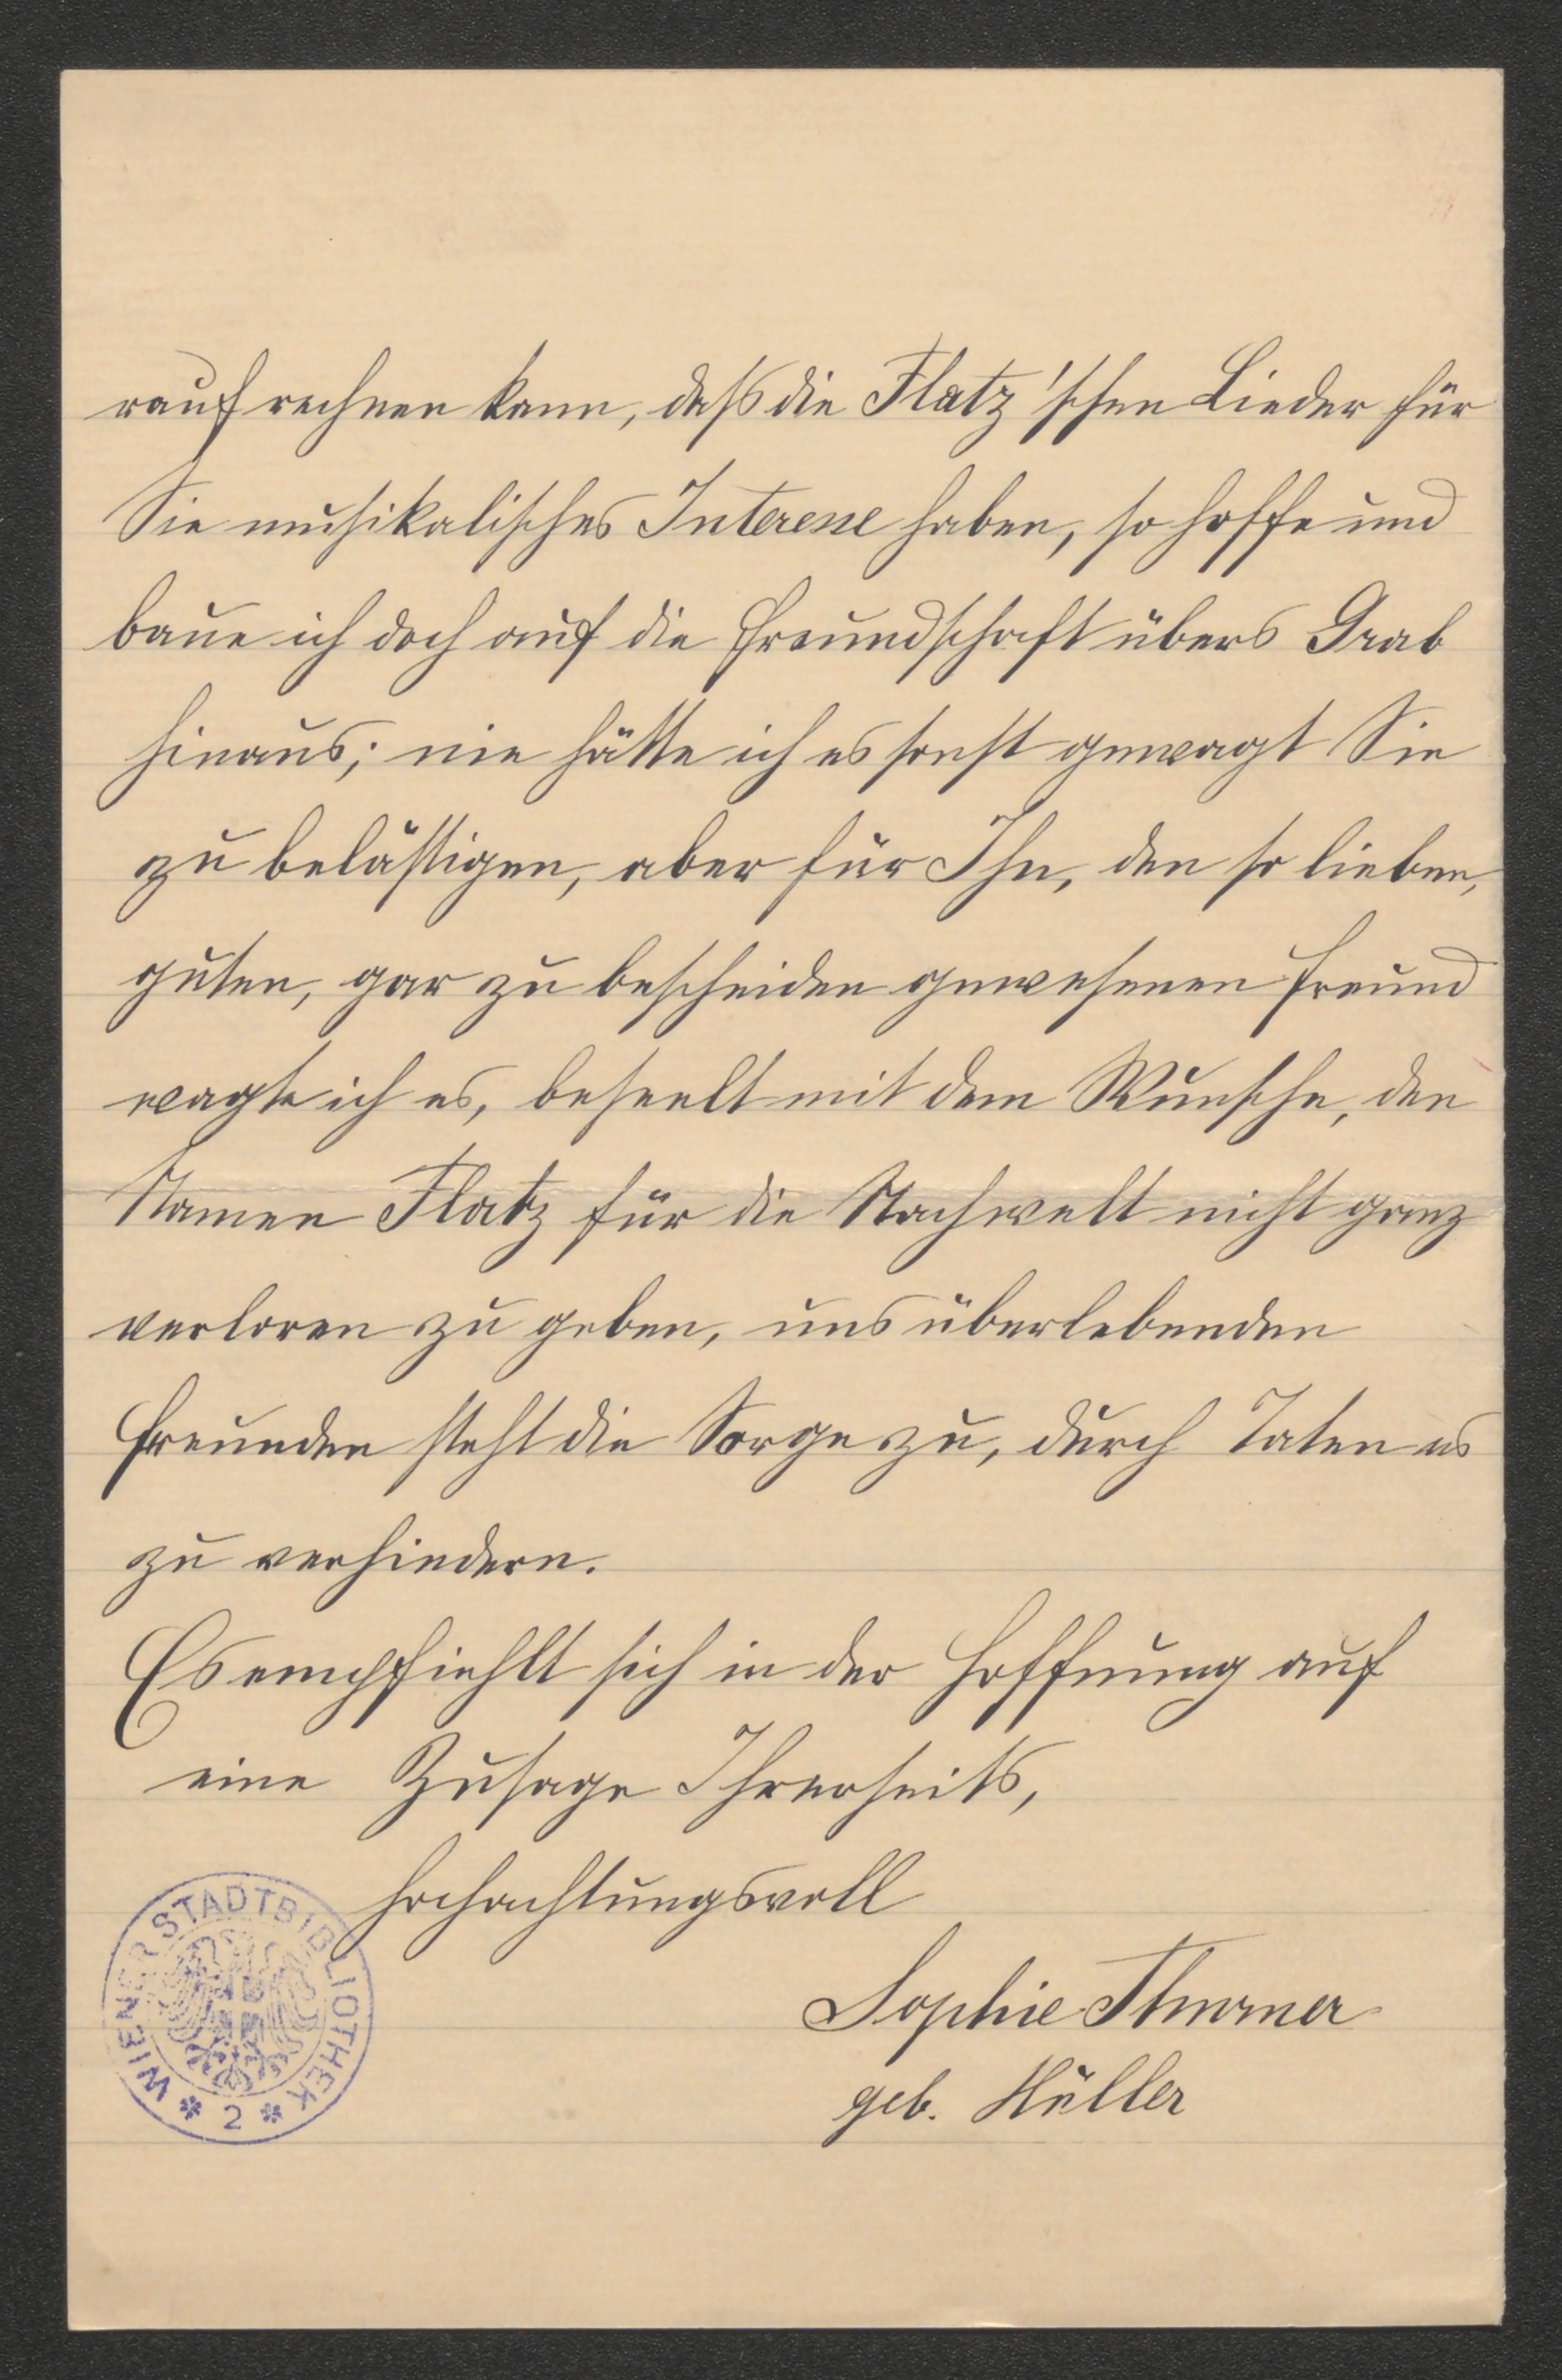 rauf rechnen kann, daß die Flatz'schen Lieder für
Sie musikalisches Interesse haben, so hoffe und
baue ich doch auf die Freundschaft übers Grab
hinaus; nie hätte ich es sonst gewagt Sie
zu belästigen, aber für Ihn, den so lieben,
guten, gar zu bescheiden gewesenen Freund
wagte ich es, beseelt mit dem Wunsche, den
Namen Flatz für die Nachwelt nicht ganz
verloren zu geben, uns überlebenden
Freunden steht die Sorge zu, durch Taten es
zu verhindern.
Es empfiehlt sich in der Hoffnung auf
eine Zusage Ihrerseits,
hochachtungsvoll
Sophie
geb. Müller
WIENER STADTBIBLIOTHEK
* 2 *